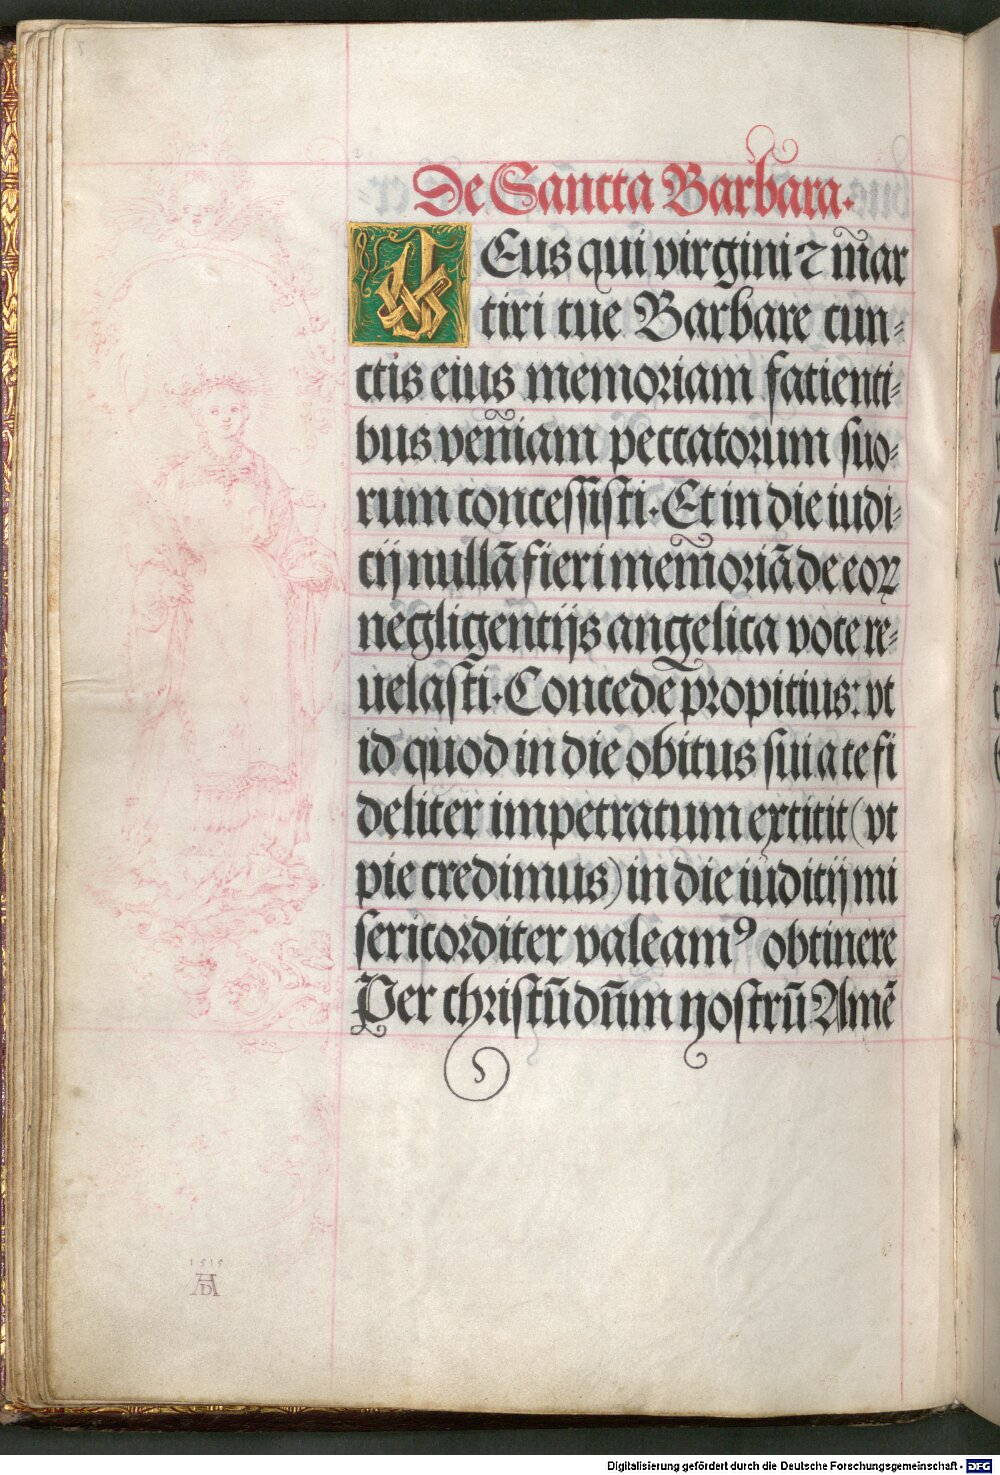 De Sancta Barbara.
DEus qui virgini ⁊ m̃ar
tiri tue Barbare cun-
ctis eius memoriam facienti-
bus veñiam peccatorum suo-
rum concessisti. Et in die iudi-
cij nullā fieri mem̃oriā de eoꝝ
negligentijs angelica voce re-
uelasti. Concede propitius: vt
id quod in die obitus sui a te fi
deliter impetratum extitit (vt
pie credimus) in die iudicij mi
sericorditer valeamꝰ obtinere
Per christū dñm nostrū Amē
1515
AD
Digitalisierung gefördert durch die Deutsche Forschungsgemeinschaft - DFG